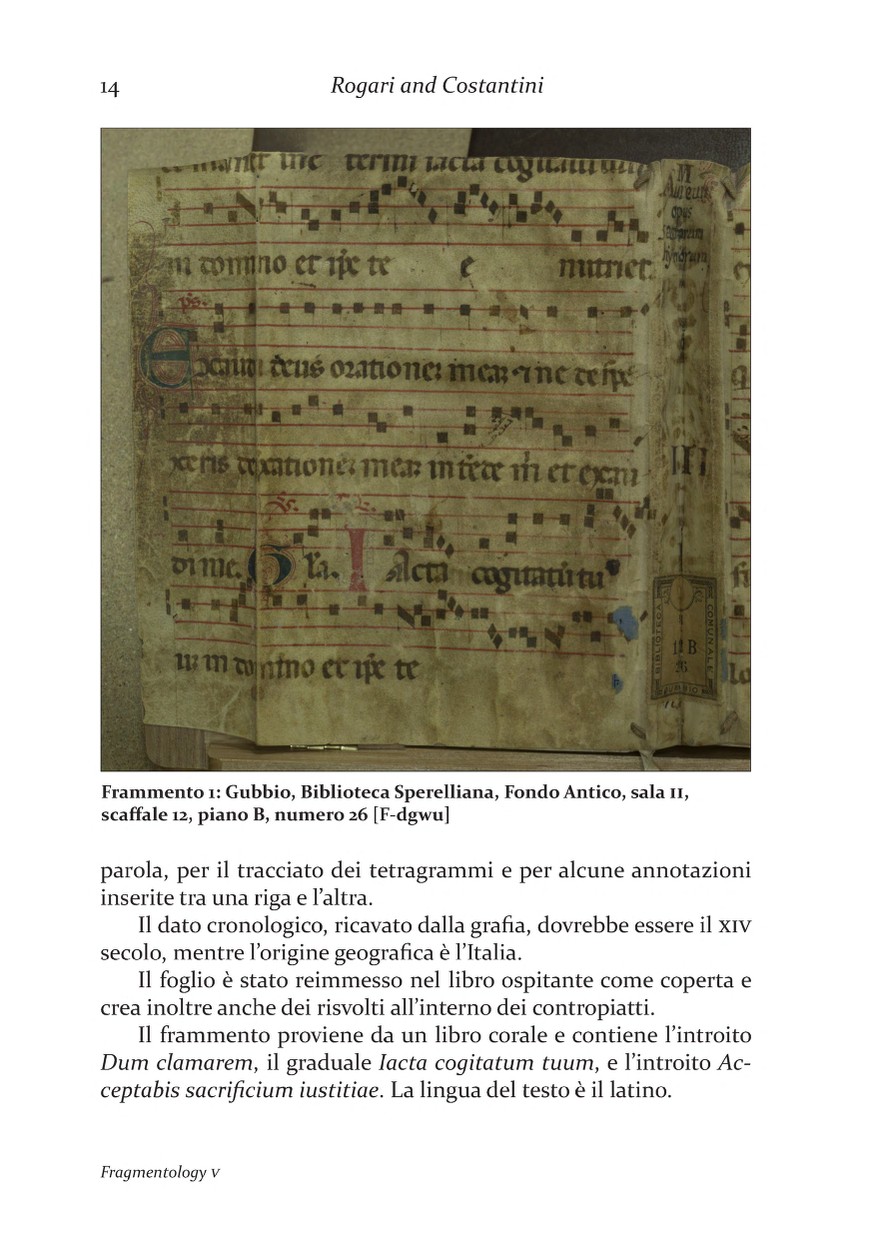 14
Rogari and Costantini
termi iacta cogitatum
in domino et ipse te e nutriet.
ps.
deus orationem meam et ne
orationem meam intende et exau
di me. Gra. Iacta cogitatu tu
um in domino et ipse te
M
Aureum
opus
III
BIBLIOTECA COMUNALE
B
26
GUBBIO
Frammento 1: Gubbio, Biblioteca Sperelliana, Fondo Antico, sala II,
scaffale 12, piano B, numero 26 [F-dgwu]
parola, per il tracciato dei tetragrammi e per alcune annotazioni
inserite tra una riga e l’altra.
Il dato cronologico, ricavato dalla grafia, dovrebbe essere il XIV
secolo, mentre l’origine geografica è l’Italia.
Il foglio è stato reimmesso nel libro ospitante come coperta e
crea inoltre anche dei risvolti all’interno dei contropiatti.
Il frammento proviene da un libro corale e contiene l’introito
Dum clamarem, il graduale Iacta cogitatum tuum, e l’introito Ac-
ceptabis sacrificium iustitiae. La lingua del testo è il latino.
Fragmentology V